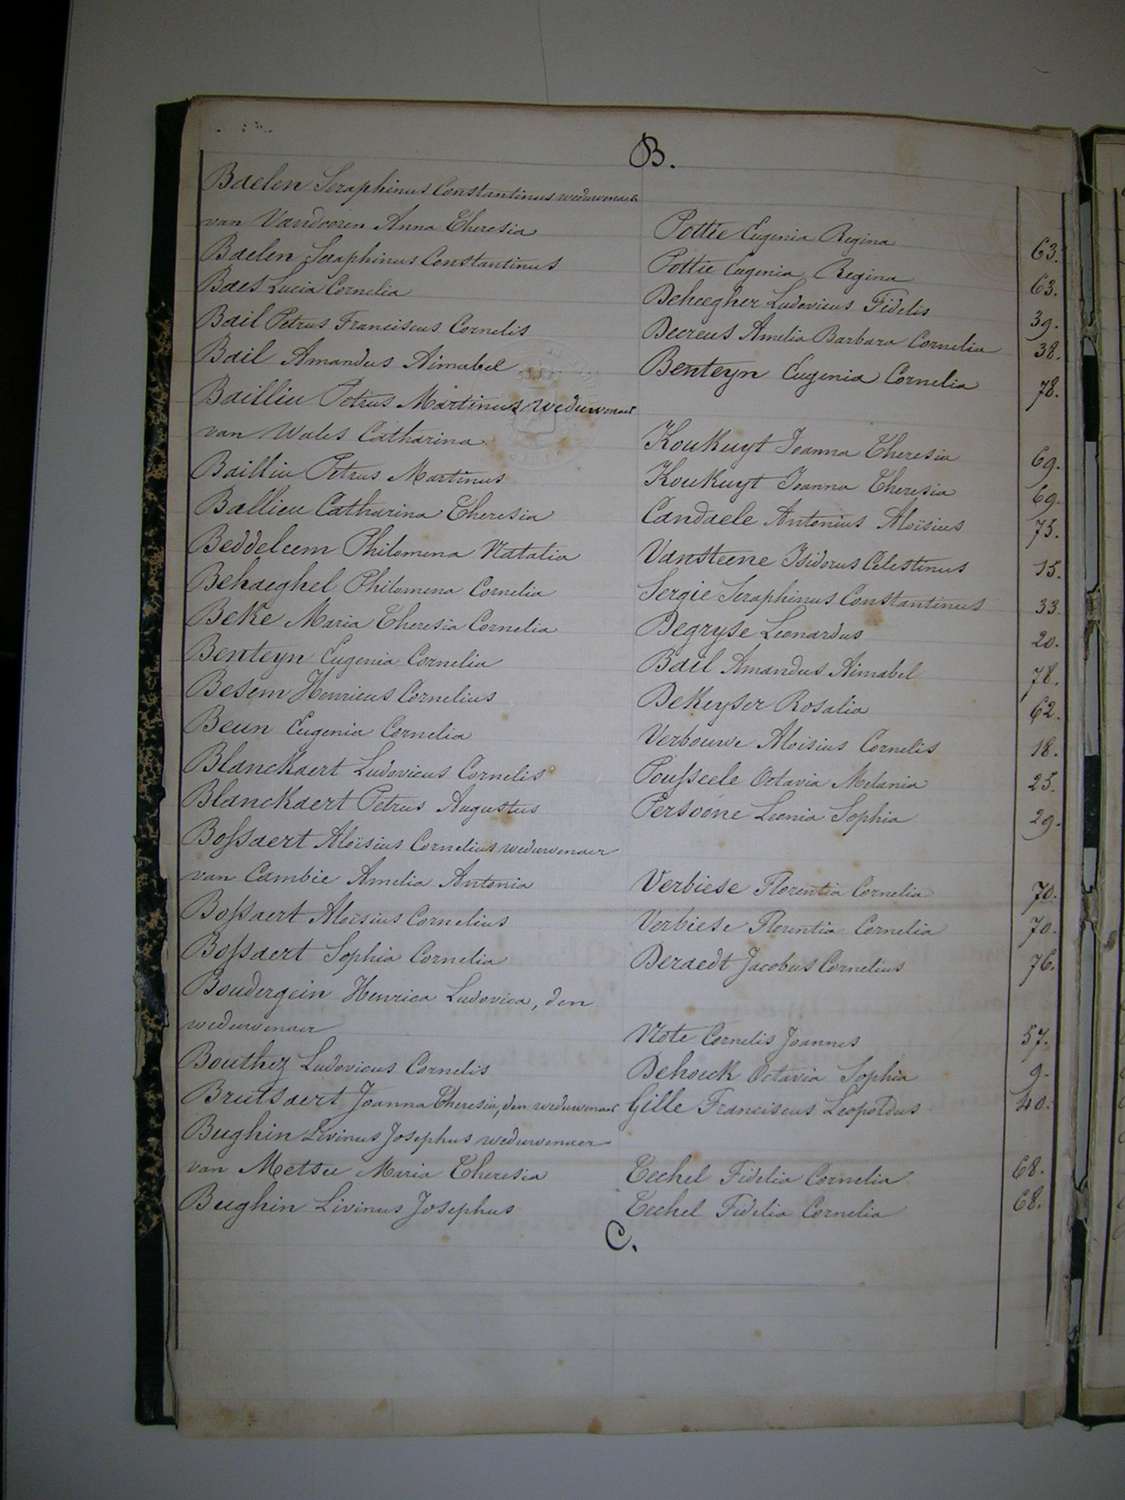 B.
Baelen Seraphinus Constantinus weduwenaer
van Vandooren Anna Theresia Pottie Eugenia Regina 63.
Baelen Seraphinus Constantinus Pottie Eugenia Regina 63.
Baes Lucia Cornelia Deheegher Ludovicus Fidelis 39.
Bail Petrus Franciscus Cornelis Decreus Amelia Barbara Cornelia 38.
Bail Amandus Aimabel Benteyn Eugenia Cornelia 78.
Bailliu Petrus Martinus weduwenaer
van Wales Catharina Koukuyt Joanna Theresia 69.
Bailliu Petrus Martinus Koukuyt Joanna Theresia 69.
Ballieu Catharina Theresia Candaele Antonius Aloïsius 75.
Beddeleem Philomena Natalia Vansteene Isidorus Celestinus 15.
Behaeghel Philomena Cornelia Sergie Seraphinus Constantinus 33.
Beke Maria Theresia Cornelia Degryse Leonardus 20.
Benteyn Eugenia Cornelia Bail Amandus Aimabel 78.
Besem Henricus Cornelius Dekeyser Rosalia 62.
Beun Eugenia Cornelia Verbouwe Aloïsius Cornelis 18.
Blanckaert Ludovicus Cornelis Pousseele Octavia Melania 25.
Blanckaert Petrus Augustus Persoone Leonia Sophia 29.
Bossaert Aloïsius Cornelius weduwenaer
van Cambie Amelia Antonia Verbiese Florentia Cornelia 70.
Bossaert Aloïsius Cornelius Verbiese Florentia Cornelia 70.
Bossaert Sophia Cornelia Deraedt Jacobus Cornelius 76.
Boudergein Henrica Ludovica, den
weduwenaer Note Cornelis Joannes 57.
Bouthez Ludovicus Cornelis Dehouck Octavia Sophia 9.
Brutsaert Joanna Theresia, den weduwenaer Gille Franciscus Leopoldus 40.
Bughin Livinus Josephus weduwenaer
van Metsu Maria Theresia Techel Fidelia Cornelia 68.
Bughin Livinus Josephus Techel Fidelia Cornelia 68.
C.